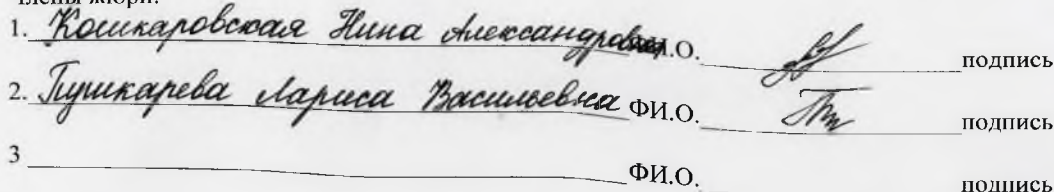 члены жюри:
1. Кошкаровская Нина Александровна Ф.И.О. подпись
2. Пушкарева Лариса Васильевна ФИ.О. подпись
3 ФИ.О. подпись